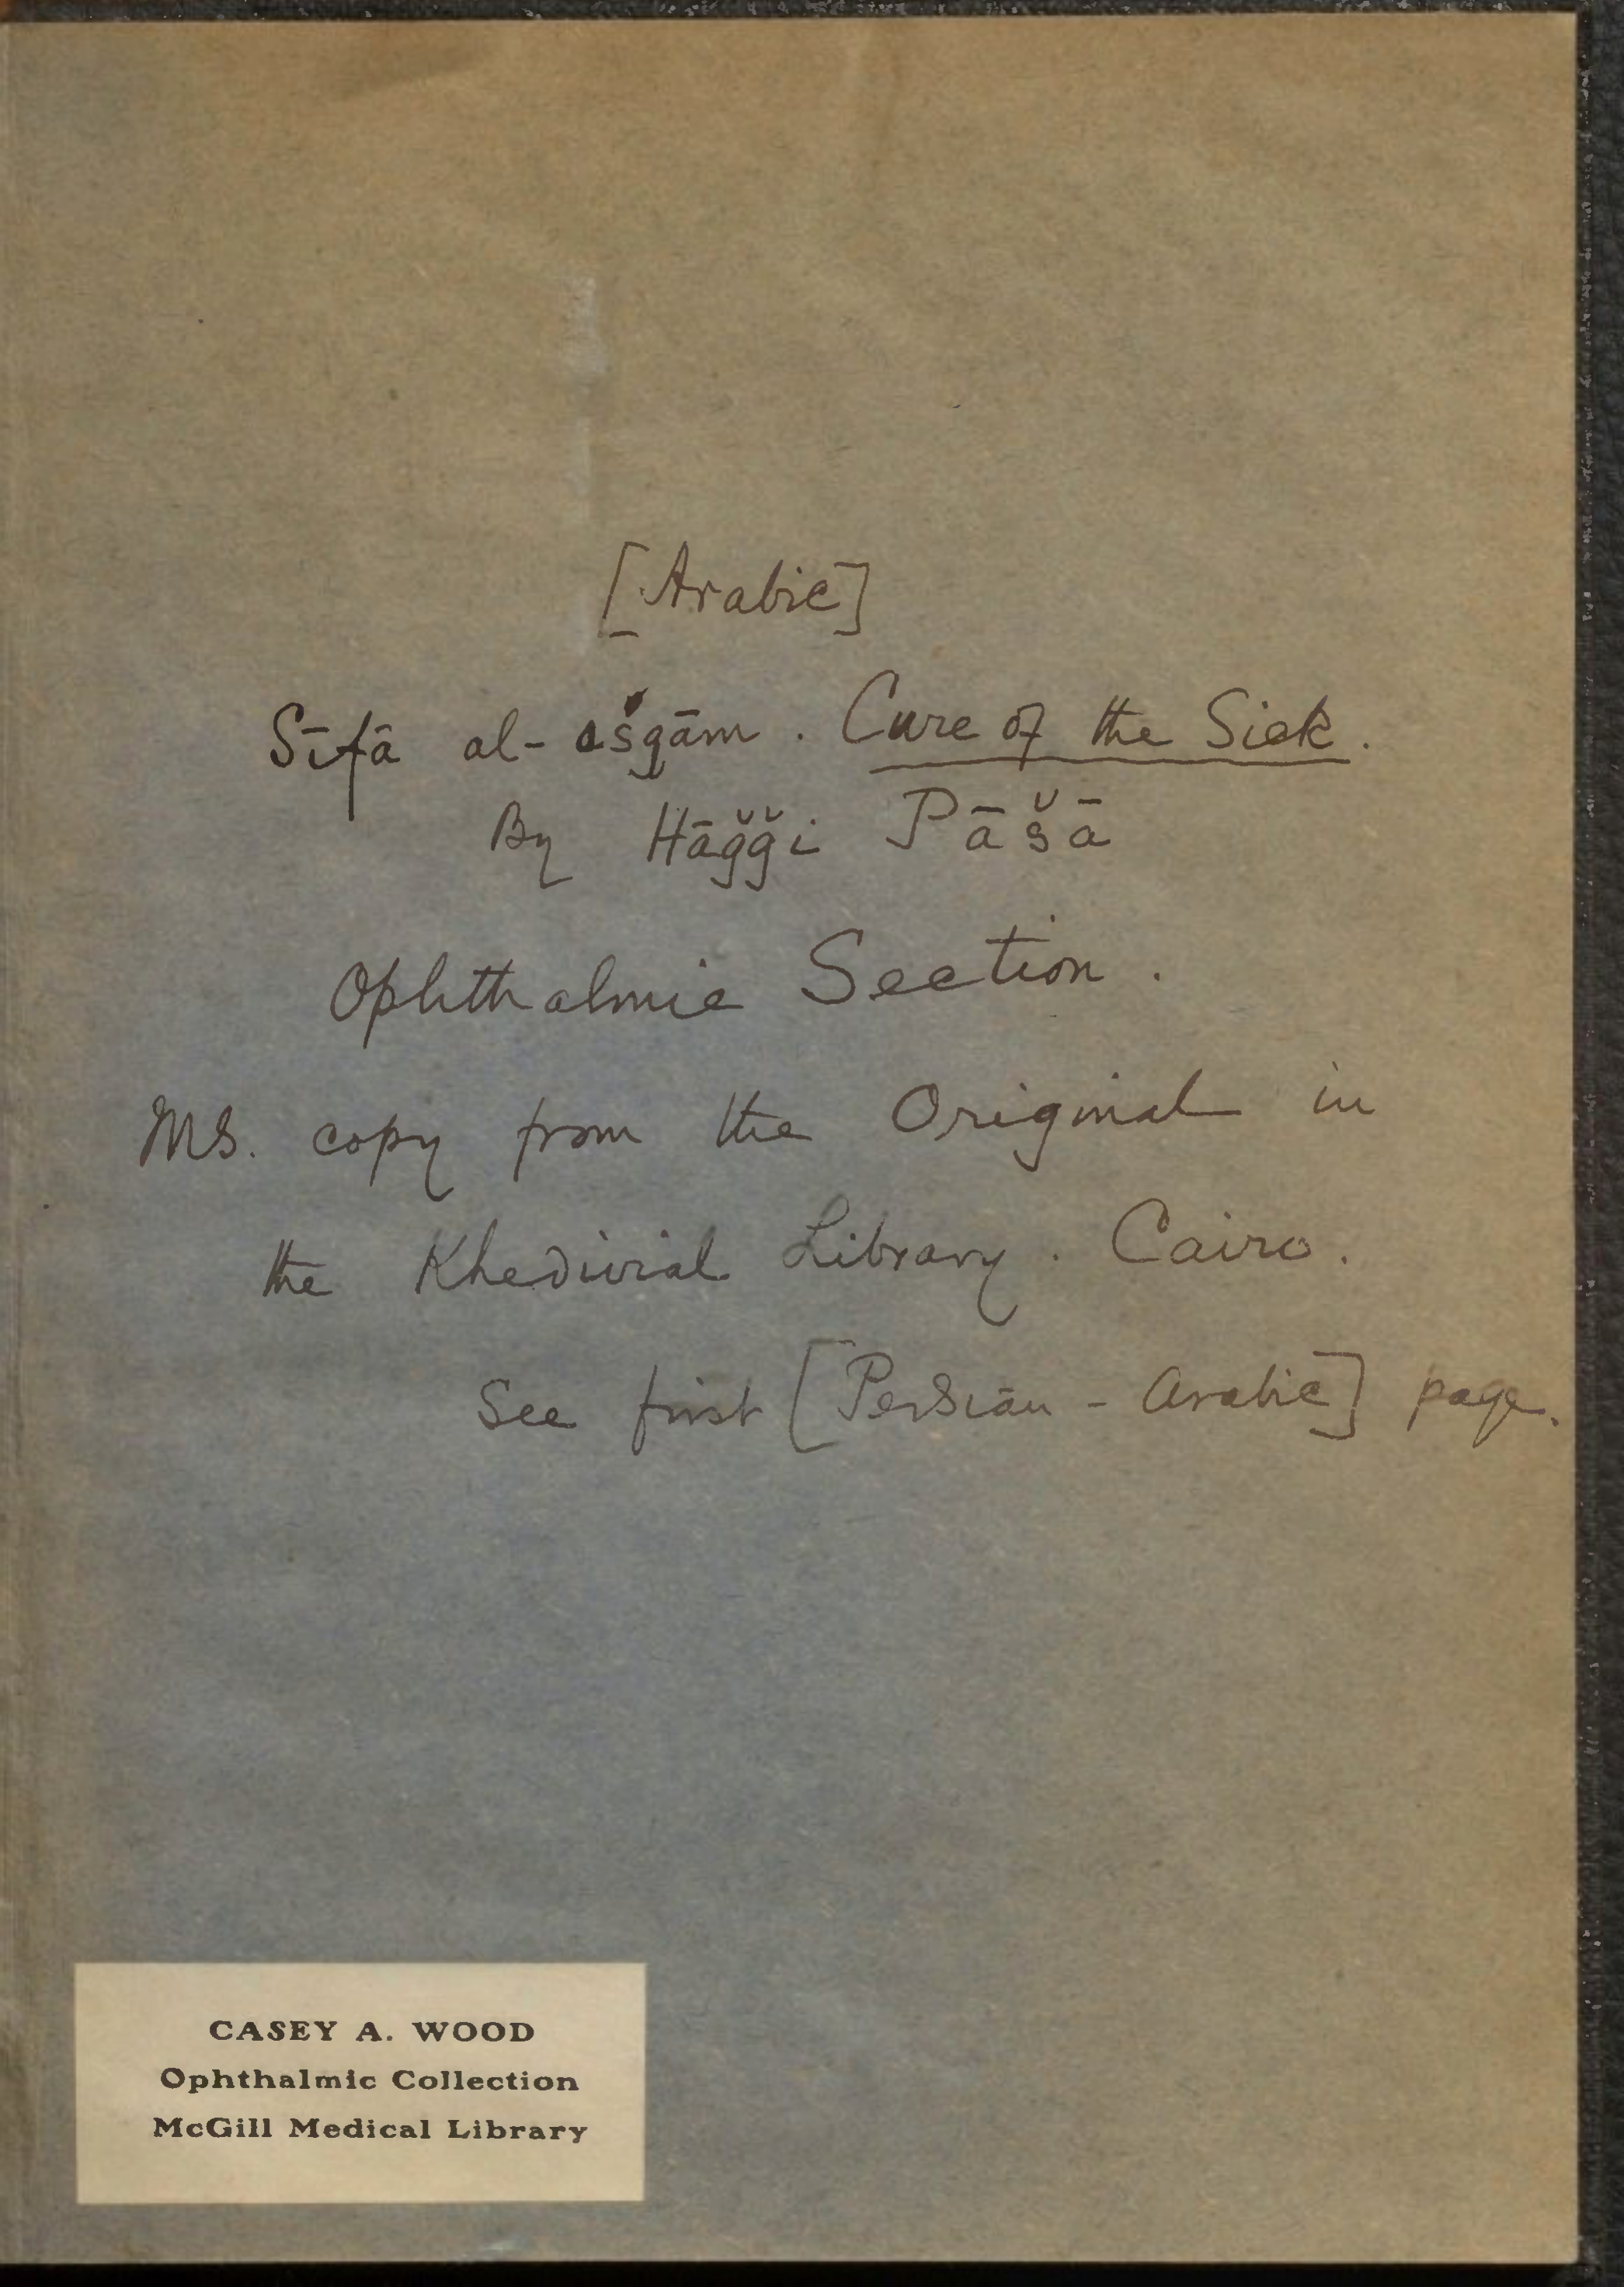 [Arabic]
Sīfā al-ašgām. Cure of the Sick.
By Hāğği Pāšā
Ophthalmic Section.
MS. copy from the Original in
the Khedivial Library. Cairo.
See first [Persian - Arabic] page.
CASEY A. WOOD
Ophthalmic Collection
McGill Medical Library